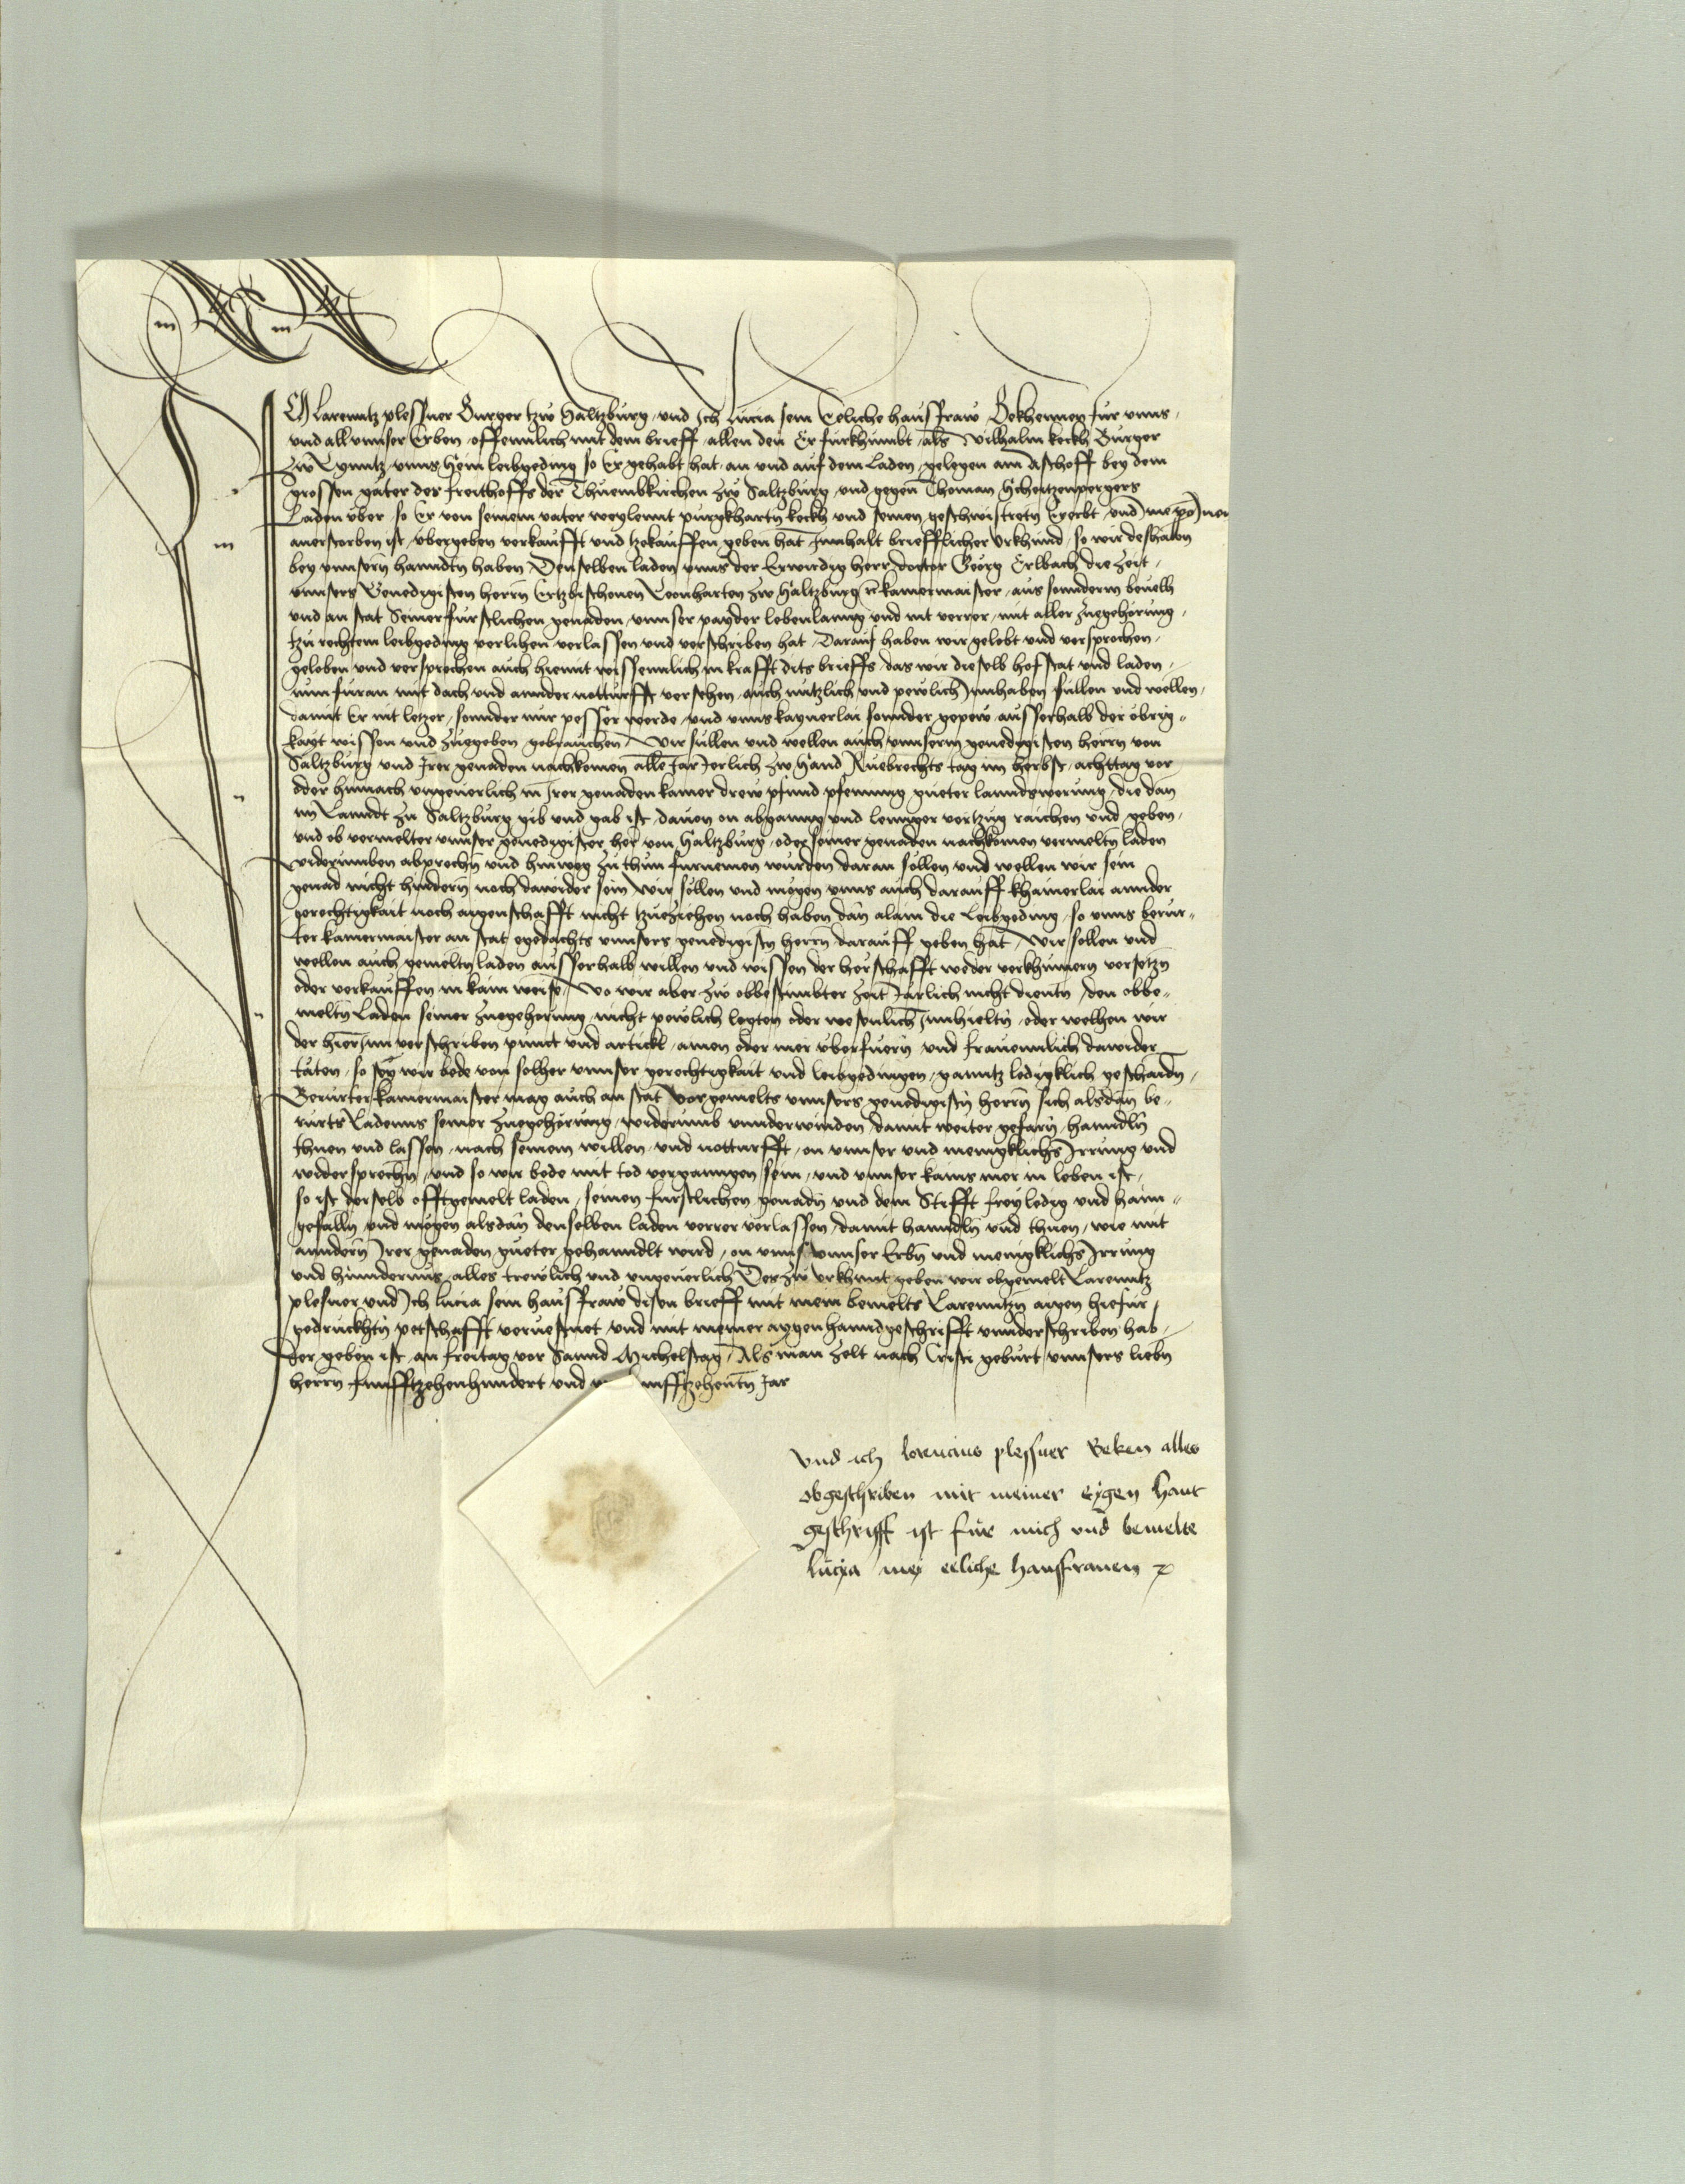 ICH Larenntz plessner Burger tzw Saltzburg, und Ich Lucia sein Eeliche hausfraw Bekhennen fur unns,
und all unnser Erben offennlich mit dem brieff, allen den Er furkhumbt, als Wilhalm keckh Burger
zw Lynntz unns sein leibgeding so Er gehabt hat, an und auf dem Laden, gelegen am Aschoff bey dem
grossen gater des freithoffs der Thuembkirchen zw Saltzburg, und gegen Thoman Scheitzenpergers
Laden uber, so Er von seinem vater weylennt purgkhartn keckh und seinen geschwistretn Ererbt, und
anerstorben ist, ubergeben verkaufft und tzekauffen geben hat Innhalt briefflicher urkhund, so wir deshalbn
bey unnsern hanndtn haben Denselben laden unns der Erwirdig herr doctor Georg Erlbach die Zeit,
unnsers Genedigisten herrn Ertzbischouen Leonharten zw Saltzburg rc kamermaister, aus sonnderm beuelh
und an stat Seiner furstlichen genaden, unnser payder lebenlanng und nit verrer, mit aller zuegehorung,
tzu rechtem leibgeding verlihen verlassen und verschriben hat, Darauf haben wir gelobt und versprochen,
geloben und versprechen auch hiemit wissenntlich in krafft dits brieffs, das wir dieselb hofstat und laden,
nun furan mit dach und annder notturfft versehen, auch nutzlich und pewlich Innhaben sullen und wellen,
damit Er nit letzer, sonnder nur pesser werde, und unns kaynerlai sonnder gepew ausserhalb der obrig,,
kayt wissen und zuegeben gebrauchen, Wir sullen und wellen auch unnserm genedigisten herrn von
Saltzburg und Irer genaden nachkomen alle Jar Jerlich zw Sand Ruebrechts tag im herbst, achttag vor
oder hinnach ungeuerlich in Irer genaden kamer drew pfund pfenning gueter lanndswerung, die dan
im Lanndt zu Saltzburg gib und gab ist, dauon on abganng und lennger vertzug raichen und geben,
und ob vermelter unnser genedigister her von Saltzburg, oder seiner genaden nachkomen vermeltn laden
widerumben abprechn und hinweg zu thun furnemen wurden daran sollen und wellen wir sein
genad nicht hindern noch dawider sein Wir sollen und mogen unns auch darauff khainerlai annder
gerechtigkait noch aigenschafft nicht tzueziehen noch haben dan alain die Leibgeding, so unns berur,,
ter kamermaister an stat egedachts unnsers genedigistn herrn darauff geben hat, Wir sollen und
wellen auch gemeltn laden ausserhalb willen und wissen der herschafft weder verkhumern versetzn
oder verkauffen in kain weise, Wo wir aber zw obbestimbter zeit Jarlich nicht dientn, den obbe,,
meltn Laden seiner zuegehorung, nicht pewlich legten oder wesenlich Innhieltn, oder welhen wir
der hierinn verschriben punct und artickl, ainen oder mer uberfuern und frauennlich dawider
taten, so sey wir bede von solher unnser gerechtigkait und leibgedingen, ganntz ledigklich geschaidn,
Berurter kamermaister mag auch an stat Vorgemelts unnsers genedigistn herrn sich alsdann be,,
rurts Ladenns seiner zuegehorung, widerumb unnderwinden, damit weiter gefarn, hanndln
thuen und lassen, nach seinem willen, und notturfft, on unnser und menigklichs Irrung und
widersprechn, und so wir bede mit tod verganngen sein, und unnser kains mer in leben ist,
so ist derselb offtgemelt laden, seinen furstlichen genadn und dem Stifft frey ledig und haim,,
gefalln und mogen alsdan denselben laden verrer verlassen, damit hanndln und thuen, wie mit
anndern Irer genaden gueter gehanndlt wird, on unns unnser Erbn und menigklichs Irrung
und hindernus, alles trewlich und ungeuerlich Des zw urkhunt geben wir obgemelt Larenntz
plesner und Ich lucia sein hausfraw disen brieff mit mein bemelts Larenntzn aigen hiefur
gedruckhtn petschafft veruestnet und mit meiner aygen hanndgeschrifft unnderschriben hab,
Der geben ist, an freitag vor Sannd Michelstag, Als man zelt nach Cristi geburt unnsers liebn
herrn funfftzehenhundert und umfftzehentn Jar
Und ich lorencius plessner Beken alles
obgeschriben mit meiner eygen hant
geschrifft ist fur mich und bemelte
lucya mey eeliche hausfrauen